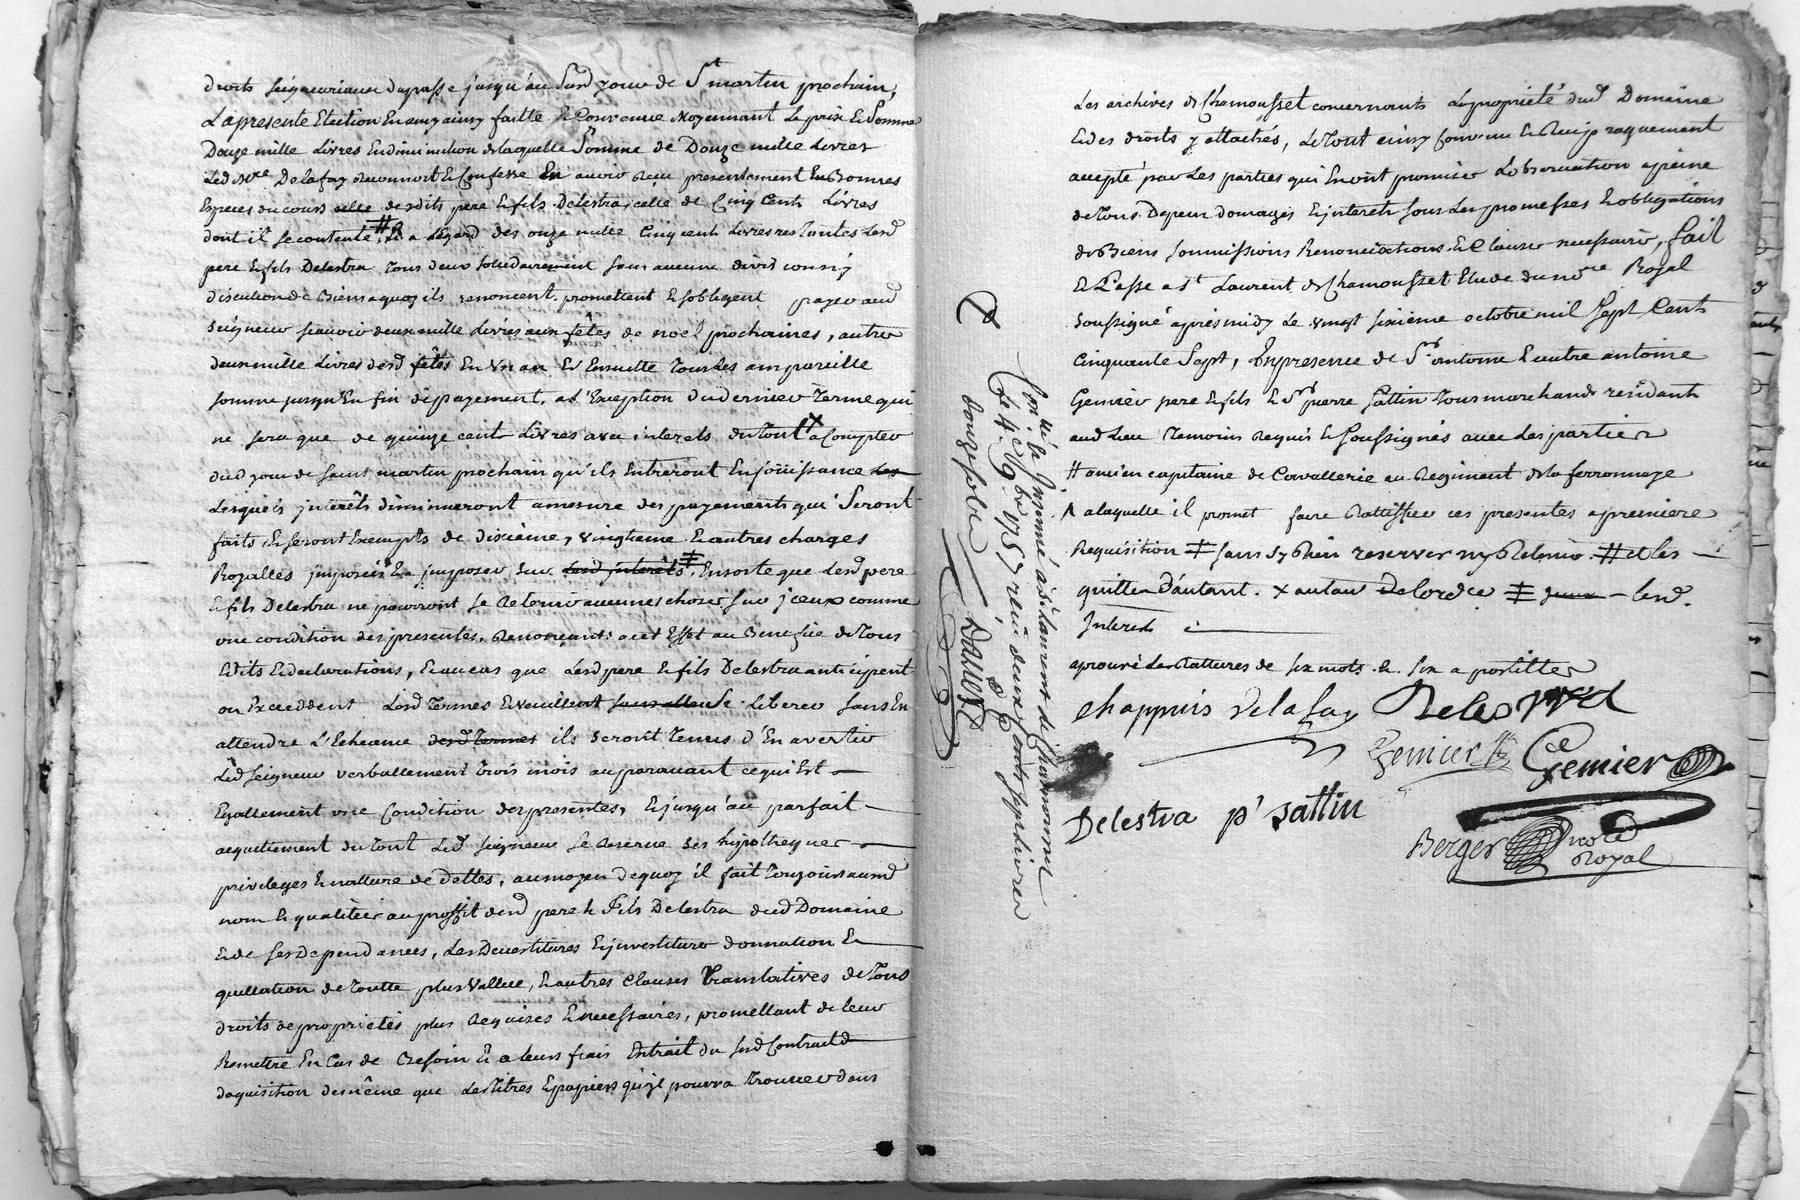 droits seigneuriaux du passé jusqu'au susd jour de St martin prochain,
La presente Election En amy ainsy faitte & Convenue Moyennant Le prix & Somme
Douze mille Livres En diminution de laquelle Somme de Douze mille Livres
Led Sgr Delafay Reconnoit & Confesse En avoir Recu presentement En Bonnes
Especes du cours desdits pere & fils Delestra celle de Cinq Cents Livres
dont il se contente # & a L'égard des onze mille Cinq cent Livres restantes Lesd
pere & fils Delestra Tous deux solidairement sans aucune division ny
discution de Biens a quoy ils renoncent, promettent & s'obligent payer aud
Seigneur sçavoir deux mille Livres aux fêtes de noel prochaines, autres
deux mille Livres desd fêtes En Un an Et Ensuitte Tous Les ans pareille
somme jusqu'En fin de payement, a L'Exception du dernier Terme qui
ne sera que de quinze cent Livres avec interets du Tout x a Compter
dud jour de saint martin prochain qu'ils Entreront En joüissance Les
Lesquels interêts diminueront a mesure des payements qui Seront
faits, & seront Exempts de dixième, vingtieme & autres charges
Royalles imposées & a imposer sur lesd interêts ‡, En sorte que Lesd pere
& fils Delestra ne pourront se Retenir aucunes choses sur iceux comme
une condition des presentes, Renonçant a cet Effet au Benefice de Tous
Edits & declarations, & au cas que Lesd pere & fils Delestra anticipent
ou Excedent Lesd Termes & veuillent sans attendre se Liberer sans En
attendre L'Echeance desd Termes ils seront Tenus d'En avertir
Led seigneur verballement trois mois auparavant ce qui Est
Egallement une Condition des presentes, & jusqu'au parfait
acquittement du Tout Led seigneur se Reserve ses hipotheques
privileges & nature de dettes, au moyen de quoy il fait Toujours aud
nom & qualitées au proffit desd pere & Fils Delestra dud Domaine
& de ses Dependances, Les Devestitures Investitures donnation &
quittation de Toutte plus Vallue, & autres Clauses Translatives de Tous
droits de proprietés plus Requises & necessaires, promettant de leur
Remettre En Cas de Besoin & a leurs frais Extrait du susd Contract d
daquisition de même que Les Titres & papiers qu'il pourra Trouver dans
Les archives de Chamousset concernants La proprieté dud Domaine
& des droits y attachés, Le Tout ainsy Convenu & Reciproquement
accepté par Les parties qui En ont promis L'observation a peine
de Tous Depens domages & interets sous Les promesses & obligations
de Biens soumissions Renonciations & Clauses necessaires, fait
& Passé a St Laurent de Chamousset Etude du nore Royal
Soussigné après midy Le vingt sixieme octobre mil Sept Cent
Cinquante Sept, En presence de Sr antoine & autre antoine
Gemier pere & fils & Sr pierre Sattin Tous marchands residants
aud Lieu Temoins Requis & Soussignés avec Les parties
# ancien capitaine de Cavallerie au Regiment de la ferronnaye
Λ a laquelle il promet faire Rattiffier ces presentes a premiere
Requisition ‡ sans y Rien reserver ny Retenir. # et les
quitte d'autant. x
‡ Lesd.
Interets
aprouvé Les Rattures de six mots & six apostilles
Chappuis Delafay
Delestra
Gemier fils
Gemier
Delestra
p' Sattin
Berger
nore
Royal
Con.lé & Insinué a St Laurent de Chamousset
Le 4e 9bre 1757 reçu deux cents livres
douze sols